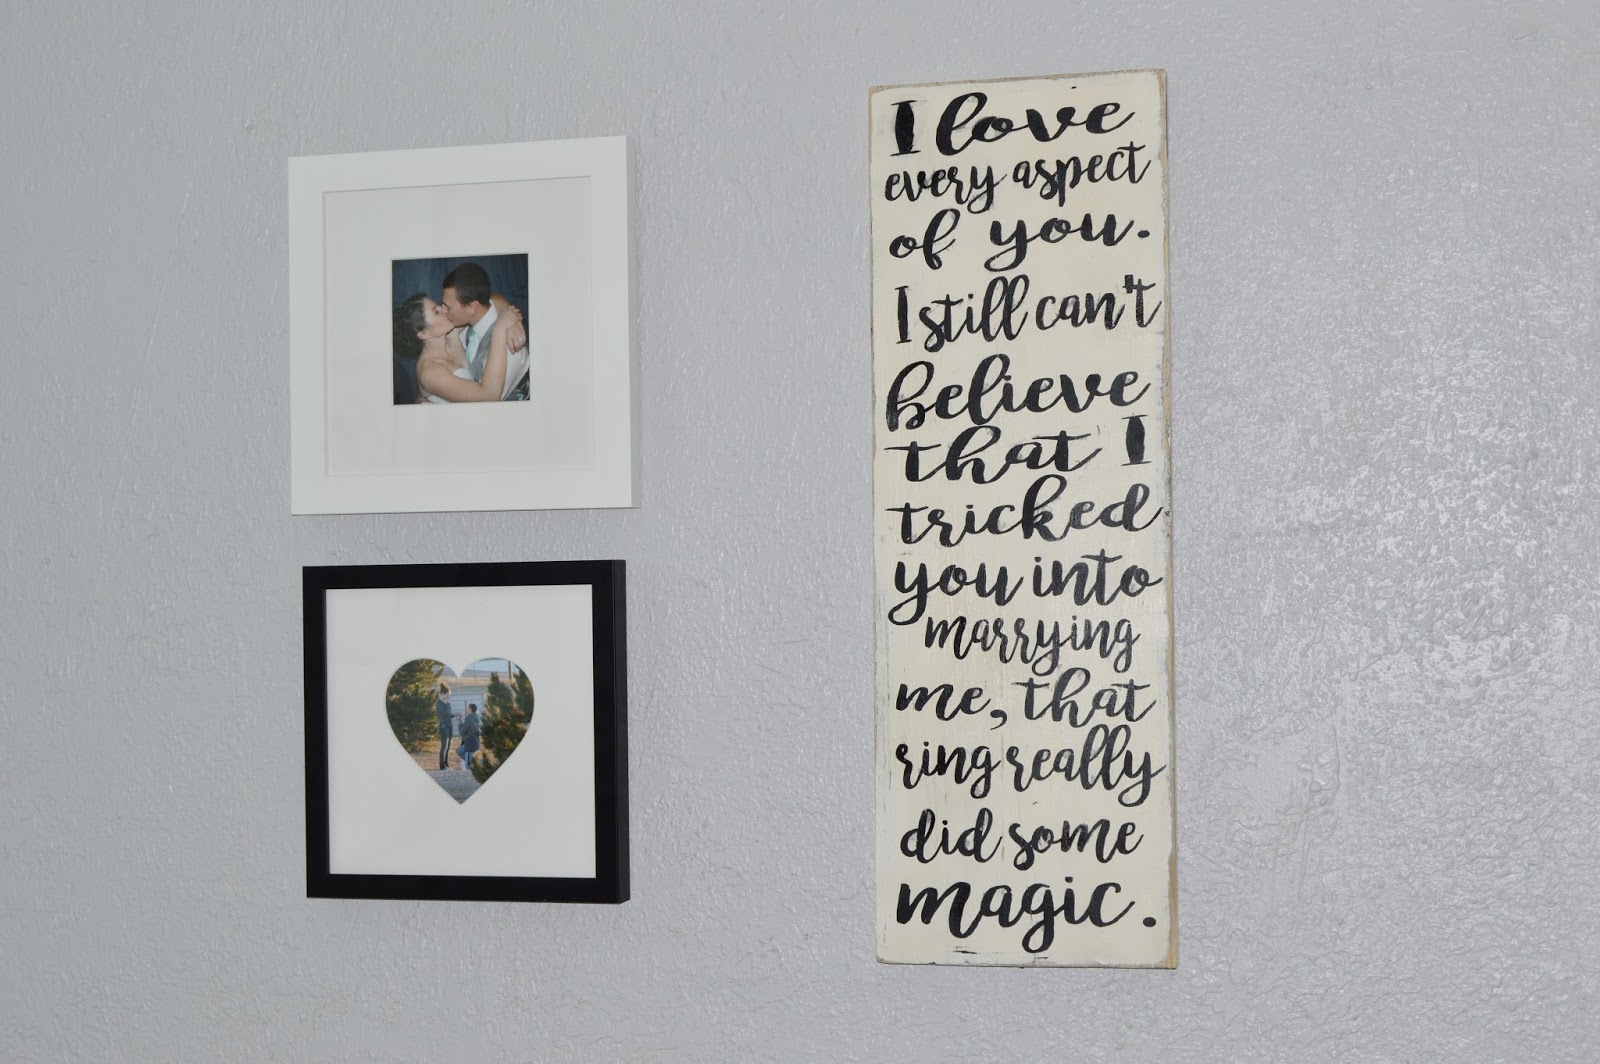 I love
every aspect
of you.
I still can't
believe
that I
tricked
you into
marrying
me, that
ring really
did some
magic.